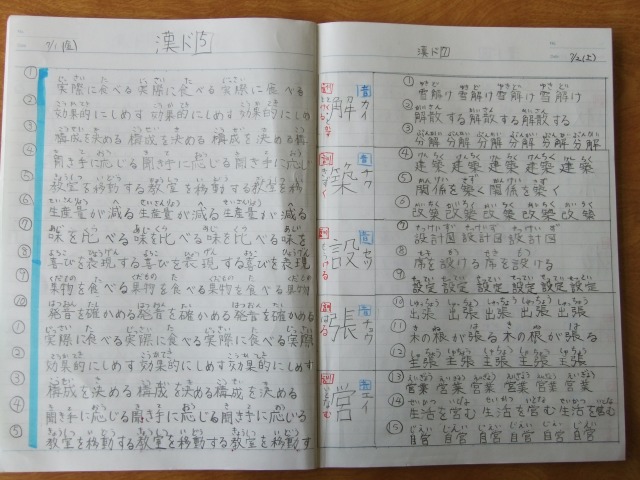 7/1(金)
漢ド5
① 実際に食べる実際に食べる実際に食べる
② 効果的にしめす効果的にしめす効果的にしめ
③ 構成を決める構成を決める構成を決める構
④ 聞き手に応じる聞き手に応じる聞き手に応
⑤ 教室を移動する教室を移動する教室を移
⑥ 生産量が減る生産量が減る生産量が減る
⑦ 味を比べる味を比べる味を比べる味を
⑧ 喜びを表現する喜びを表現する喜びを表現
⑨ 果物を食べる果物を食べる果物を食べる果物
⑩ 発音を確かめる発音を確かめる発音を確かめる
① 実際に食べる実際に食べる実際に食べる実際
② 効果的にしめす効果的にしめす効果的に
③ 構成を決める構成を決める構成を決める
④ 聞き手に応じる聞き手に応じる聞き手に応じる
⑤ 教室を移動する教室を移動する教室を移動す
漢ド7
7/2(土)
解 音 カイ
① 雪解け雪解け雪解け雪解け
② 解散する解散する解散する
③ 分解分解分解分解分解分解
築 音 チク
④ 建築建築建築建築建築
⑤ 関係を築く関係を築く
⑥ 改築改築改築改築改築
設 音 セツ
⑦ 設計図設計図設計図
⑧ 席を設ける席を設ける
⑨ 設定設定設定設定設定
張 音 チョウ
⑩ 出張出張出張出張出張
⑪ 木の根が張る木の根が張る
⑫ 主張主張主張主張主張
営 音 エイ
⑬ 営業営業営業営業営業
⑭ 生活を営む生活を営む生活を営む
⑮ 自営自営自営自営自営自営